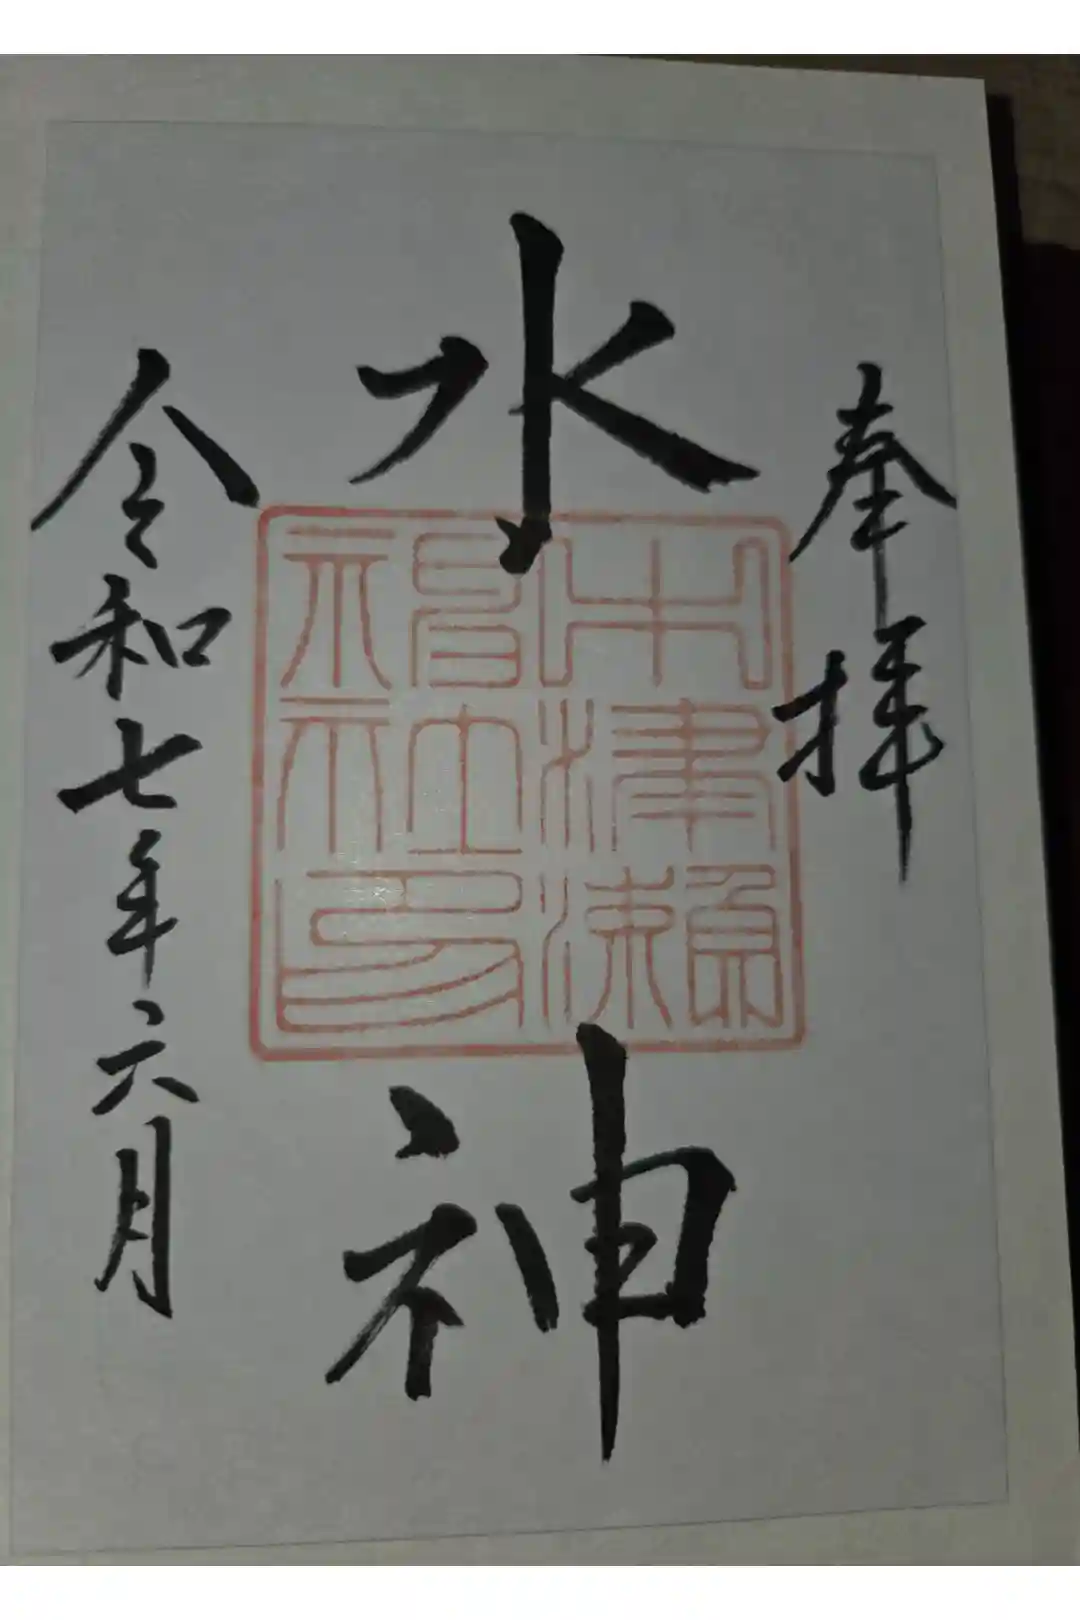 奉拝
水神
中津瀬
神社印
令和七年六月